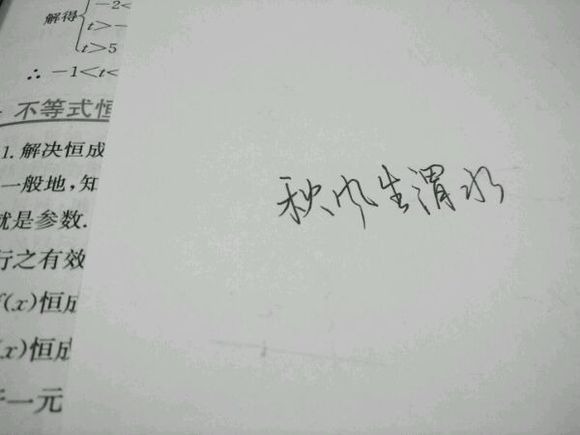 解得
-2<
t>-
t>5
∴ -1<t<
不等式恒
1. 解决恒成
一般地,知
就是参数.
行之有效
f(x)恒成
(x)恒成
一元
秋风生渭水